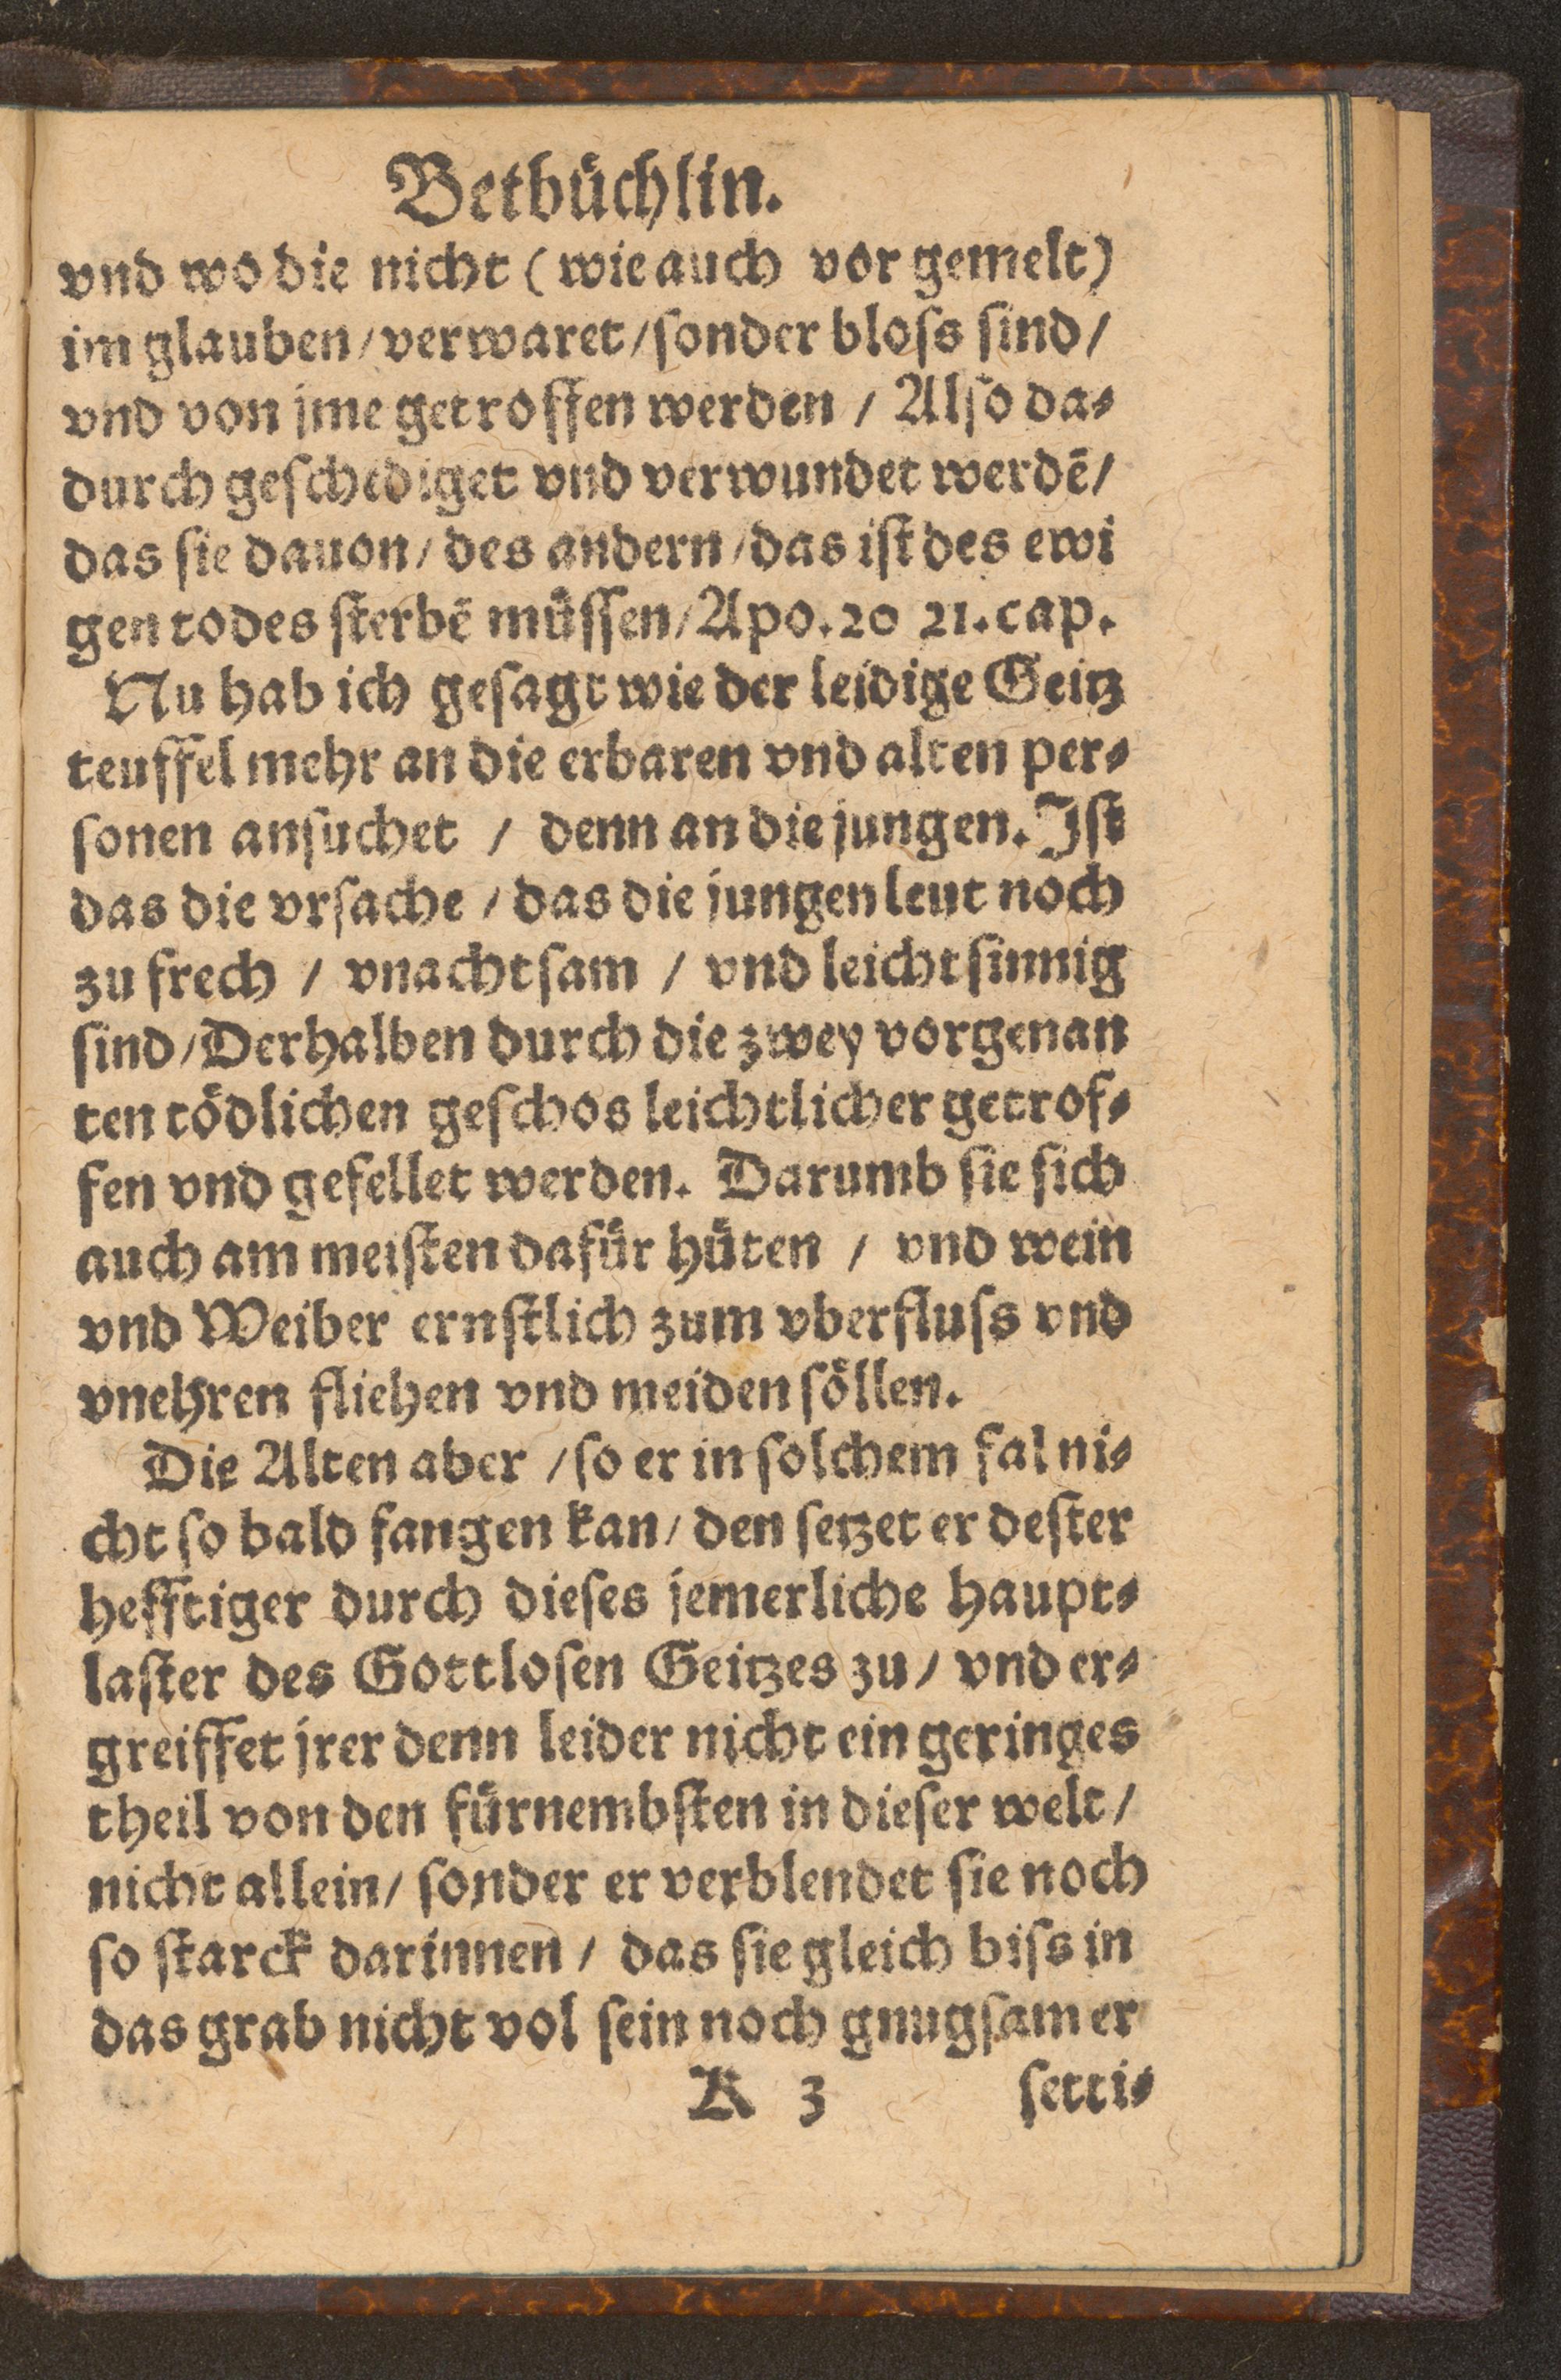 Betbüchlin.
vnd wo die nicht (wie auch vor gemelt)
im glauben / verwaret / ſonder bloſs ſind /
vnd von jme getroffen werden / Alſo da⸗
durch geſchediget vnd verwundet werdē /
das ſie dauon / des andern / das iſt des ewi
gen todes ſterbē müſſen / Apo. 20 21. cap.
Nu hab ich geſagt wie der leidige Geitz
teuffel mehr an die erbaren vnd alten per⸗
ſonen anſuchet / denn an die jungen. Iſt
das die vrſache / das die jungen leut noch
zu frech / vnachtſam / vnd leichtſinnig
ſind / Derhalben durch die zwey vorgenan
ten tödlichen geſchos leichtlicher getrof⸗
fen vnd gefellet werden. Darumb ſie ſich
auch am meiſten dafür hüten / vnd wein
vnd Weiber ernſtlich zum vberfluſs vnd
vnehren fliehen vnd meiden ſöllen.
Die Alten aber / ſo er in ſolchem fal ni⸗
cht ſo bald fangen kan / den ſetzet er deſter
hefftiger durch dieſes jemerliche haupt⸗
laſter des Gottloſen Geitzes zu / vnd er⸗
greiffet jrer denn leider nicht ein geringes
theil von den fürnembſten in dieſer welt /
nicht allein / ſonder er verblendet ſie noch
ſo ſtarck darinnen / das ſie gleich biſs in
das grab nicht vol ſein noch gnugſam er
K 3 ſetti⸗